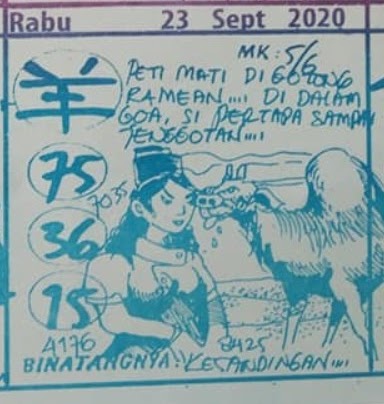 Rabu 23 Sept 2020
MK: 5/6
PETI MATI DI GOTONG
RAMEAN.... DI DALAM
GOA, SI PERTAPA SAMPAI
JENGGOTAN....
羊
75
7035
36
15
4176 8425
BINATANGNYA: KESANDINGAN....